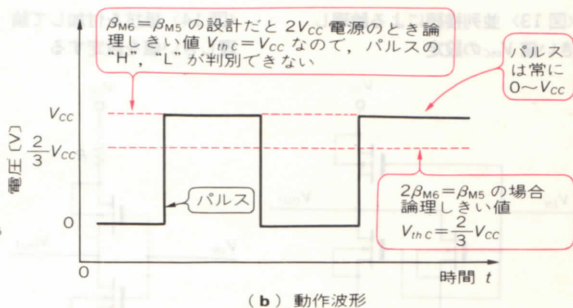 β_M6=β_M5の設計だと2V_CC電源のとき論
理しきい値V_thC=V_CCなので，パルスの
“H”，“L”が判別できない
パルス
は常に
0～V_CC
V_CC
2/3 V_CC
電圧〔V〕
パルス
2β_M6=β_M5の場合
論理しきい値
V_thC=2/3 V_CC
0
0
時間 t
(b) 動作波形